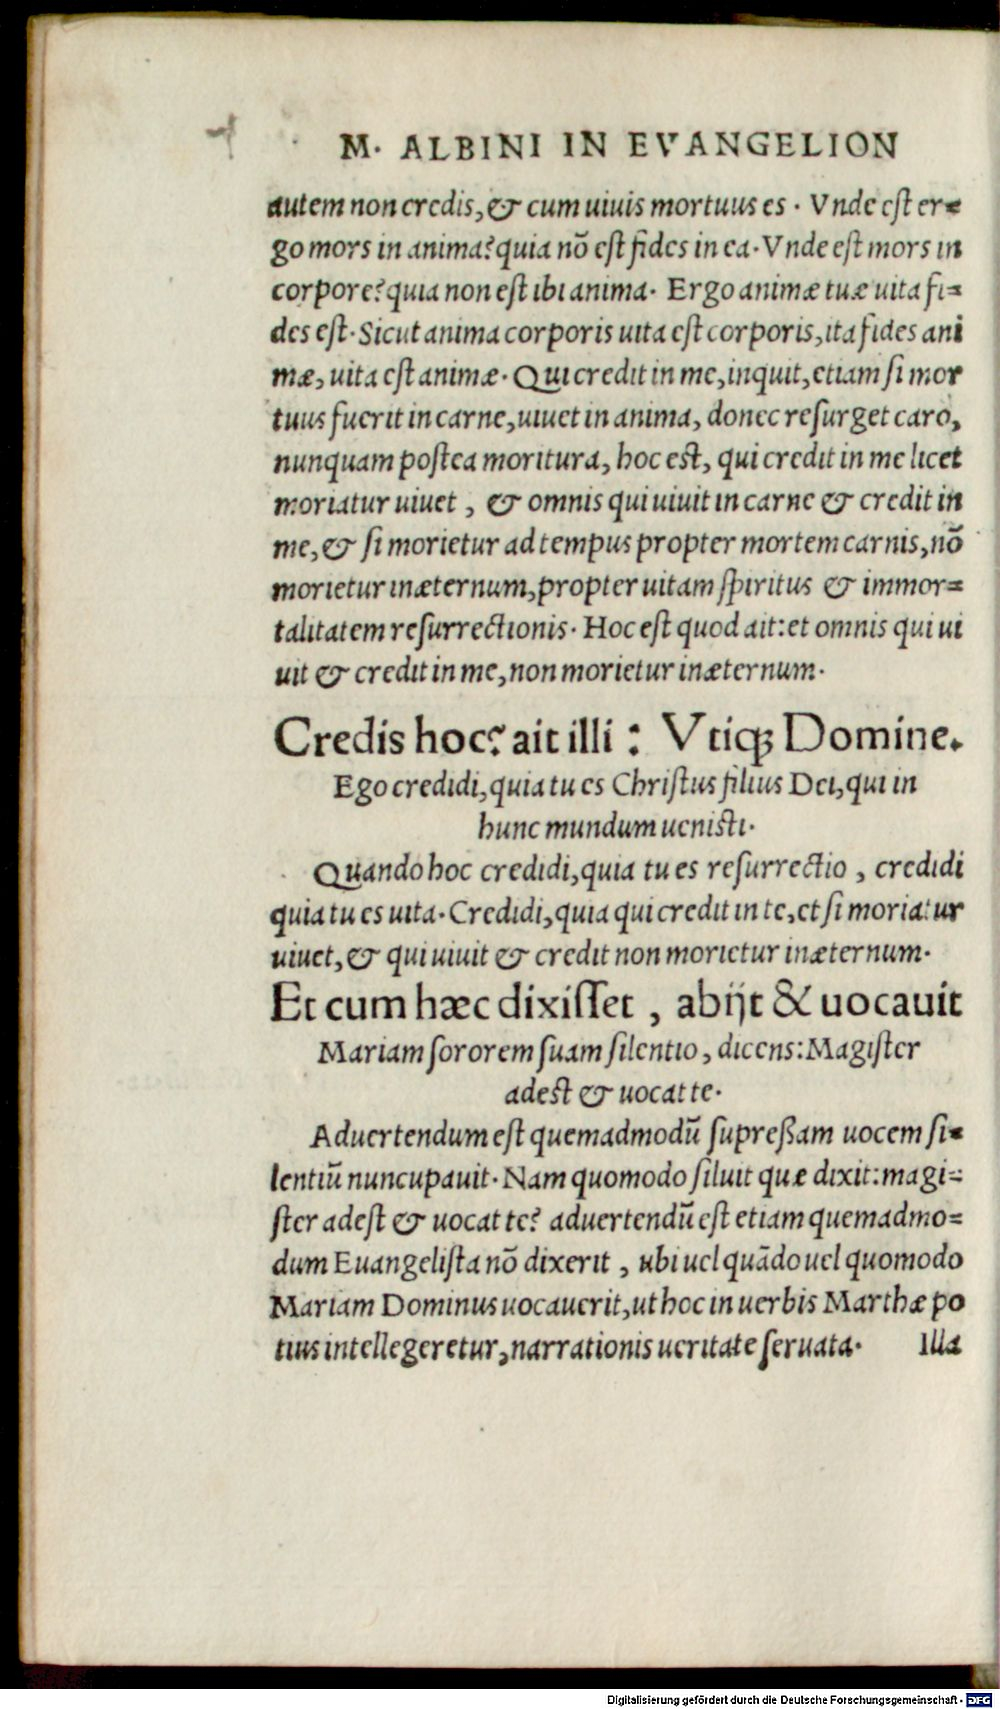 M. ALBINI IN EVANGELION
autem non credis, & cum uiuis mortuus es. Vnde est er=
go mors in anima? quia nō est fides in ea. Vnde est mors in
corpore? quia non est ibi anima. Ergo animæ tuæ uita fi=
des est. Sicut anima corporis uita est corporis, ita fides ani
mæ, uita est animæ. Qui credit in me, inquit, etiam si mor
tuus fuerit in carne, uiuet in anima, donec resurget caro,
nunquam postea moritura, hoc est, qui credit in me licet
moriatur uiuet, & omnis qui uiuit in carne & credit in
me, & si morietur ad tempus propter mortem carnis, nō
morietur inæternum, propter uitam spiritus & immor=
talitatem resurrectionis. Hoc est quod ait: et omnis qui ui
uit & credit in me, non morietur inæternum.
Credis hoc? ait illi: Vtiqꝫ Domine.
Ego credidi, quia tu es Christus filius Dei, qui in
hunc mundum uenisti.
Quando hoc credidi, quia tu es resurrectio, credidi
quia tu es uita. Credidi, quia qui credit in te, et si moriatur
uiuet, & qui uiuit & credit non morietur inæternum.
Et cum hæc dixisset, abijt & uocauit
Mariam sororem suam silentio, dicens: Magister
adest & uocat te.
Aduertendum est quemadmodū supreßam uocem si=
lentiū nuncupauit. Nam quomodo siluit quæ dixit: magi=
ster adest & uocat te? aduertendū est etiam quemadmo=
dum Euangelista nō dixerit, ubi uel quādo uel quomodo
Mariam Dominus uocauerit, ut hoc in uerbis Marthæ po
tius intellegeretur, narrationis ueritate seruata. Illa
Digitalisierung gefördert durch die Deutsche Forschungsgemeinschaft - DFG